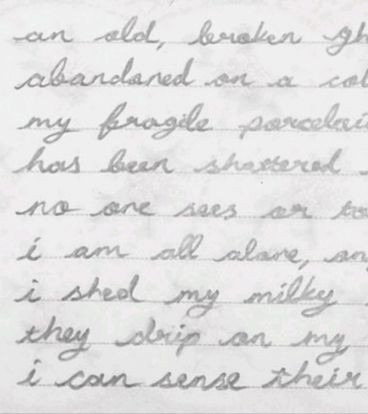 an old, broken gh
abandoned on a col
my fragile porcelai
has been shattered
no one sees or to
i am all alone, an
i shed my milky
they drip on my
i can sense their